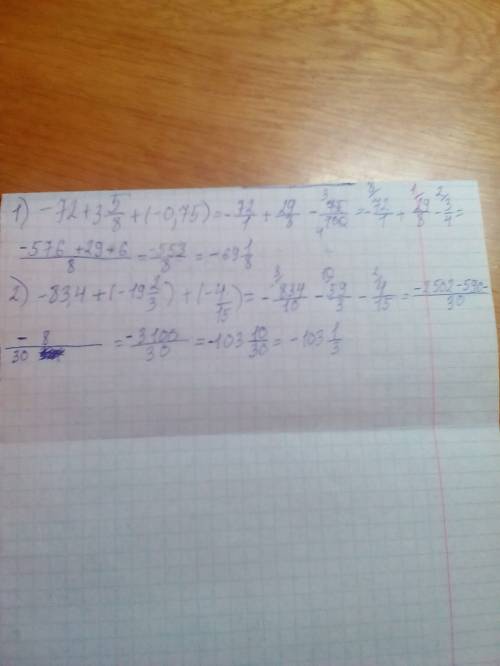 1) -72+3 5/8 +(-0,75)=-72/1 + 29/8 - 75/100 =-72/1 + 29/8 - 3/4 =
-576+29+6/8 = -553/8 = -69 1/8
2) -83,4+(-19 2/3)+(-4/15)= -834/10 - 59/3 - 4/15 = -2502-590-/30
- 8/30 = -3100/30 = -103 10/30 = -103 1/3